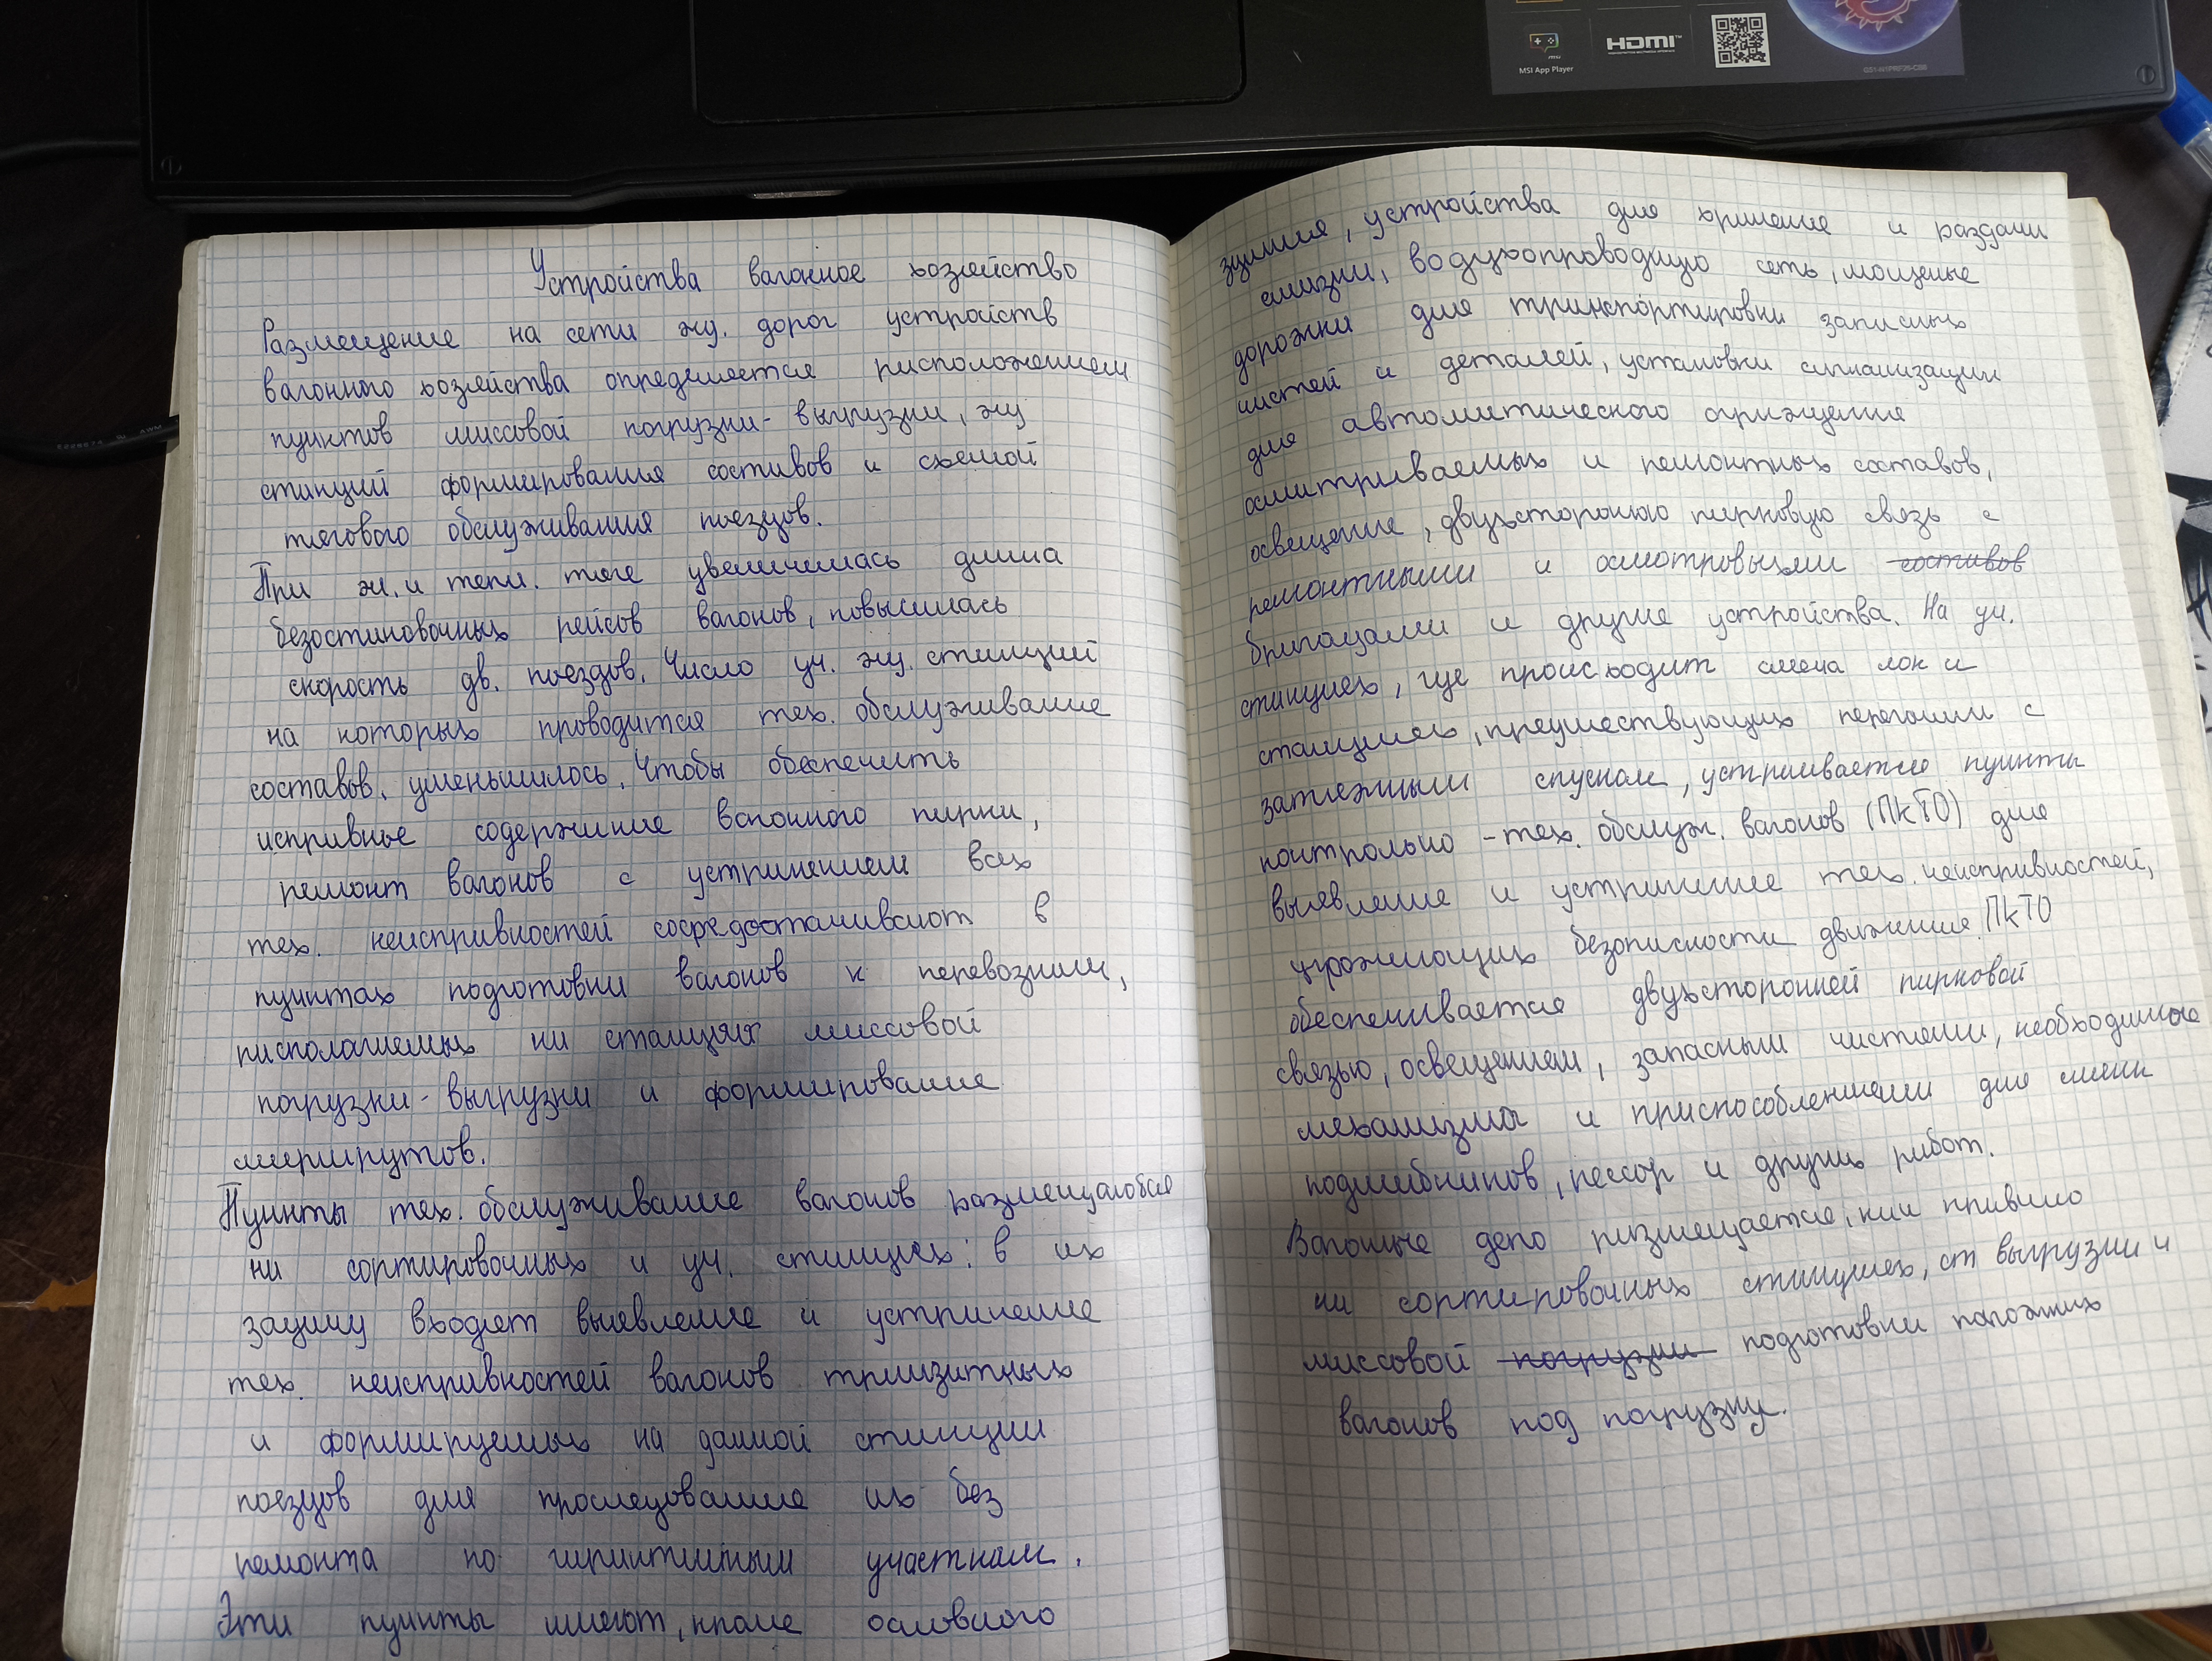 MSI App Player
HDMI
Устройства вагонное хозяйство
Размещение на сети жд. дорог устройств
вагонного хозяйства определяется расположением
пунктов массовой погрузки-выгрузки, жд
станций формирования составов и схемой
тягового обслуживания поездов.
При эл. и тепл. тяге увеличилась длина
безостановочных рейсов вагонов, повысилась
скорость дв. поездов. Число уч. жд. станций
на которых проводится тех. обслуживание
составов, уменьшилось. Чтобы обеспечить
исправное содержание вагонного парка,
ремонт вагонов с устранением всех
тех. неисправностей сосредотачивают в
пунктах подготовки вагонов к перевозкам,
располагаемых на станциях массовой
погрузки-выгрузки и формирование
маршрутов.
Пункты тех. обслуживание вагонов размещаются
на сортировочных и уч. станциях: в их
задачу входят выявление и устранение
тех. неисправностей вагонов транзитных
и формируемых на данной станции
поездов для проследование их без
ремонта по гарантийным участкам.
Эти пункты имеют, кроме основного
здания, устройства для хранение и раздачи
смазки, воздухопроводную сеть, мощеные
дорожки для транспортировки запасных
частей и деталей, установки сигнализации
для автоматического ограждение
осматриваемых и ремонтных составов,
освещение, двухстороннюю парковую связь с
ремонтными и осмотровыми составов
бригадами и другие устройства. На уч.
станциях, где происходит смена лок и
станциях, предшествующих перегонам с
затяжным спуском, устраивается пункты
контрольно-тех. обслуж. вагонов (ПКТО) для
выявление и устранение тех. неисправностей,
угрожающих безопасности движение. ПКТО
обеспечивается двухсторонней парковой
связью, освещением, запасным частями, необходимые
механизмы и приспособлениями для смены
подшибников, рессор и других работ.
Вагонные депо размещается, как правило
на сортировочных станциях, ст выгрузки и
массовой погрузки подготовки порожних
вагонов под погрузку.